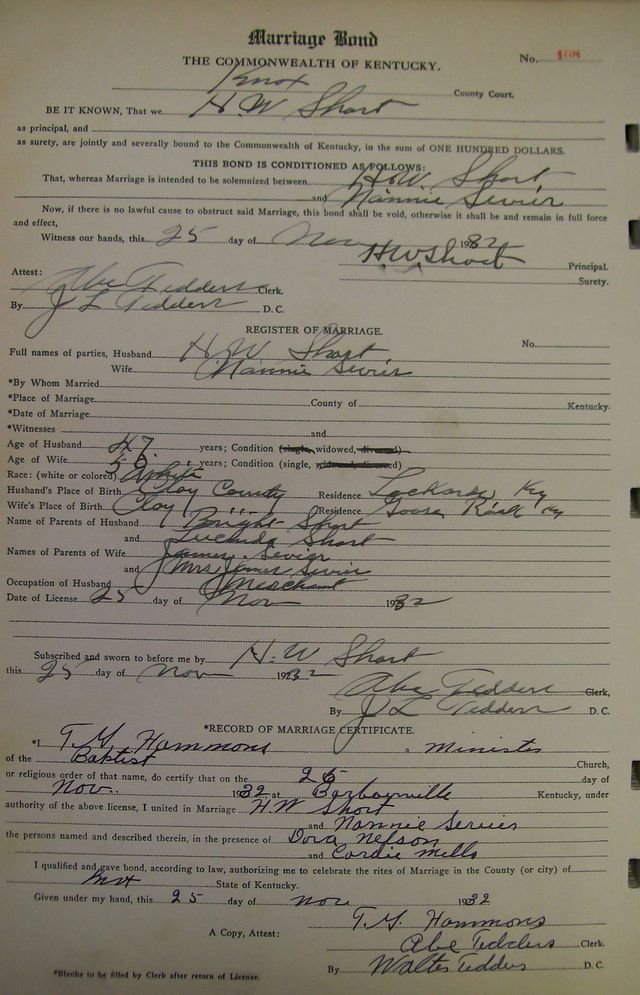 Marriage Bond
No. 108
THE COMMONWEALTH OF KENTUCKY.
Knox County Court.
BE IT KNOWN, That we H. W Short
as principal, and
as surety, are jointly and severally bound to the Commonwealth of Kentucky, in the sum of ONE HUNDRED DOLLARS.
THIS BOND IS CONDITIONED AS FOLLOWS:
That, whereas Marriage is intended to be solemnized between H. W. Short
and Nannie Sevier
Now, if there is no lawful cause to obstruct said Marriage, this bond shall be void, otherwise it shall be and remain in full force
and effect,
Witness our hands, this 25 day of Nov 1932
H W Short Principal.
Surety.
Attest:
Abe Tedders Clerk.
By J L Tedders D. C.
REGISTER OF MARRIAGE.
No.
Full names of parties, Husband H W Short
Wife Nannie Sevier
*By Whom Married
*Place of Marriage County of Kentucky
*Date of Marriage
*Witnesses and
Age of Husband 47 years; Condition (single, widowed, divorced)
Age of Wife 50 years; Condition (single, widowed, divorced)
Race: (white or colored) White
Husband's Place of Birth Clay County Residence Ky
Wife's Place of Birth Clay " Residence Goose Ky
Name of Parents of Husband Short
and Lucinda Short
Names of Parents of Wife James Sevier
and Mrs James Sevier
Occupation of Husband Merchant
Date of License 25 day of Nov 1932
Subscribed and sworn to before me by H. W Short
this 25 day of Nov 1932
Abe Tedders Clerk,
By J L Tedders D. C.
*RECORD OF MARRIAGE CERTIFICATE.
*I T. M. Hammons a Minister
of the Baptist Church,
or religious order of that name, do certify that on the day of
Nov. 1932 at Barbourville Kentucky, under
authority of the above license, I united in Marriage H W Short
and Nannie Sevier
the persons named and described therein, in the presence of Dora Nelson
and Cordie Mills
I qualified and gave bond, according to law, authorizing me to celebrate the rites of Marriage in the County (or city) of
Knox State of Kentucky.
Given under my hand, this 25 day of Nov 1932
T. M. Hammons
A Copy, Attest: Abe Tedders Clerk.
By Walter Tedders D. C.
*Blanks to be filled by Clerk after return of License.